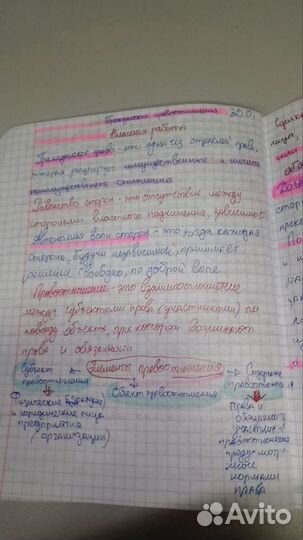 Гражданские правоотношения 30.01
Классная работа
Гражданское право - это одна из отраслей права,
которая регулирует имущественные и личные
неимущественные отношения
Равенство сторон - это отсутствие между
сторонами властного подчинения, зависимости
Автономия воли сторон - это когда каждая
сторона, будучи независимой, принимает
решение свободно, по доброй воле
Правоотношение - это взаимоотношение
между субъектами права (участниками) по
поводу объекта, при котором возникают
права и обязанности
Субъект правоотношения
Элементы правоотношения
Содержание правоотношения
Объект правоотношения
Физические (граждане)
и юридические лица
предприятия
(организации)
Права и
обязанности
участников
правоотношения
предусмотр-
нормами
права
Avito